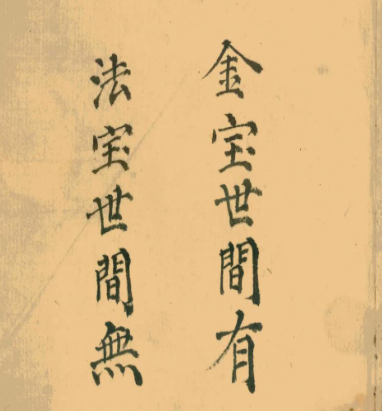 金宝世間有
法宝世間無